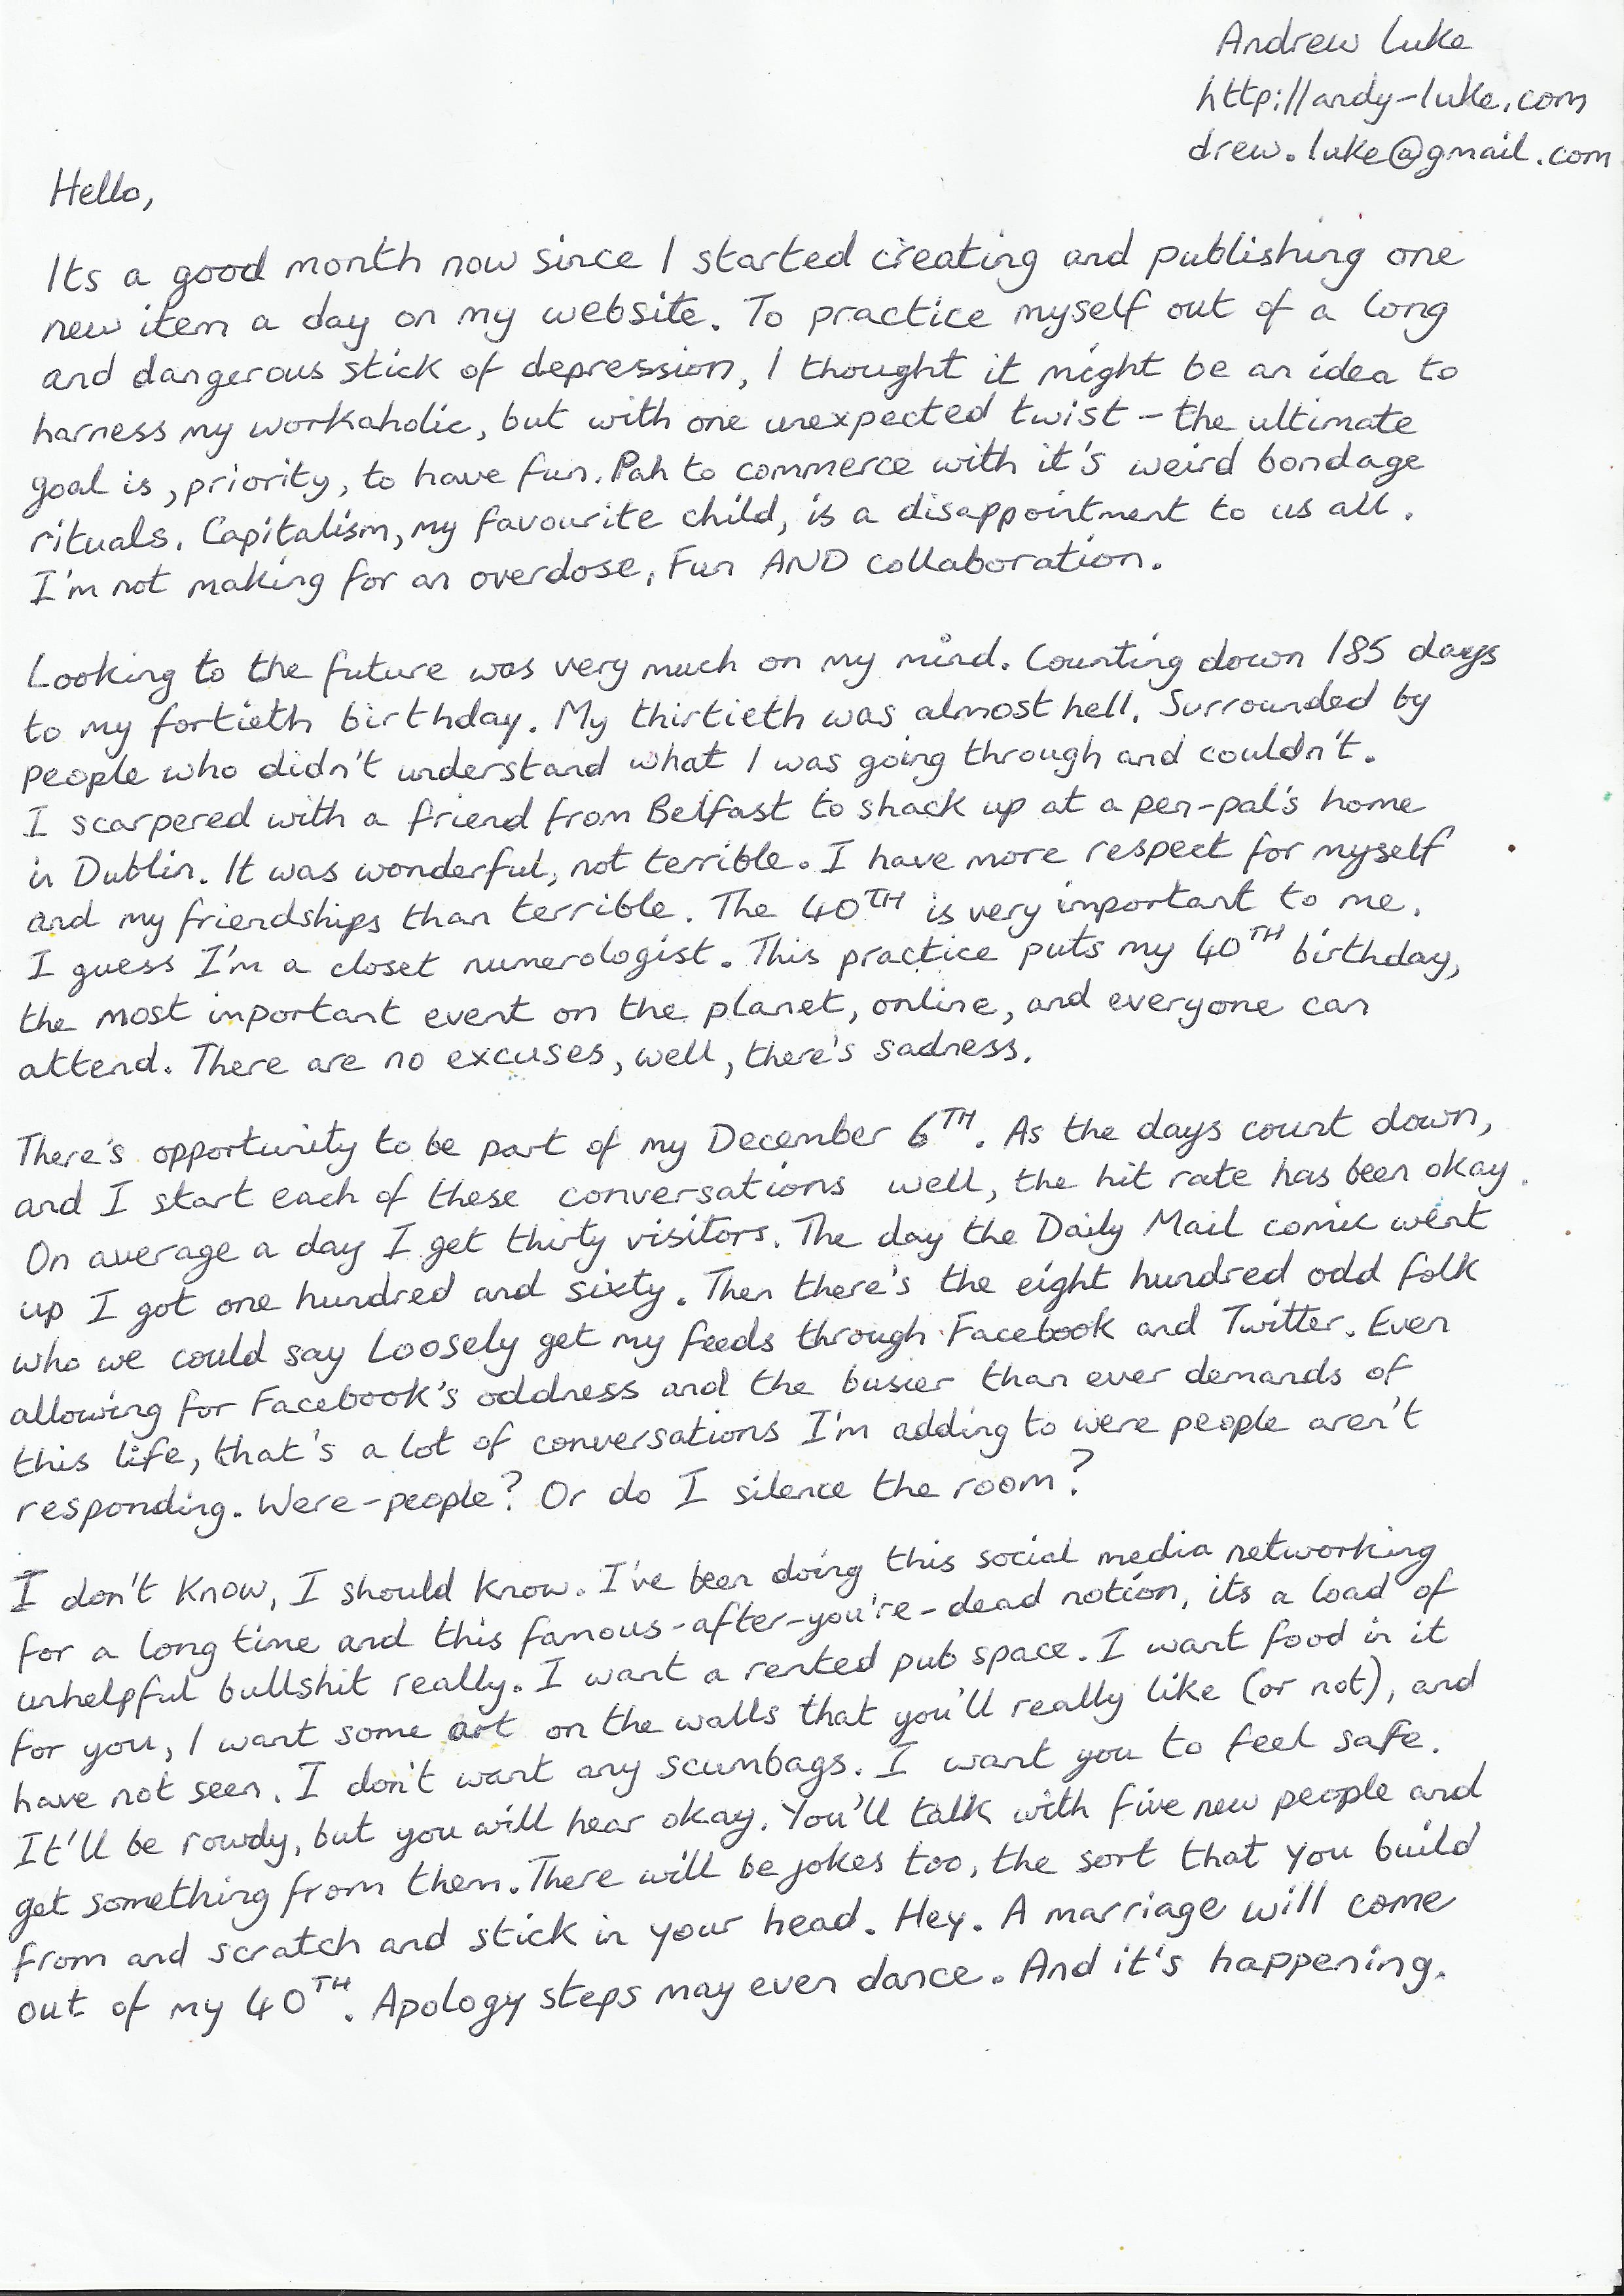 Andrew Luke
http://andy-luke.com
drew.luke@gmail.com
Hello,
Its a good month now since I started creating and publishing one
new item a day on my website. To practice myself out of a long
and dangerous stick of depression, I thought it might be an idea to
harness my workaholic, but with one unexpected twist - the ultimate
goal is, priority, to have fun. Pah to commerce with it's weird bondage
rituals. Capitalism, my favourite child, is a disappointment to us all.
I'm not making for an overdose, Fun AND collaboration.
Looking to the future was very much on my mind. Counting down 185 days
to my fortieth birthday. My thirtieth was almost hell. Surrounded by
people who didn't understand what I was going through and couldn't.
I scarpered with a friend from Belfast to shack up at a pen-pal's home
in Dublin. It was wonderful, not terrible. I have more respect for myself
and my friendships than terrible. The 40TH is very important to me.
I guess I'm a closet numerologist. This practice puts my 40TH birthday,
the most important event on the planet, online, and everyone can
attend. There are no excuses, well, there's sadness.
There's opportunity to be part of my December 6TH. As the days count down,
and I start each of these conversations well, the hit rate has been okay.
On average a day I get thirty visitors. The day the Daily Mail comic went
up I got one hundred and sixty. Then there's the eight hundred odd folk
who we could say Loosely get my feeds through Facebook and Twitter. Even
allowing for Facebook's oddness and the busier than ever demands of
this life, that's a lot of conversations I'm adding to were people aren't
responding. Were-people? Or do I silence the room?
I don't know, I should know. I've been doing this social media networking
for a long time and this famous-after-you're-dead notion, its a load of
unhelpful bullshit really. I want a rented pub space. I want food in it
for you, I want some art on the walls that you'll really like (or not), and
have not seen. I don't want any scumbags. I want you to feel safe.
It'll be rowdy, but you will hear okay. You'll talk with five new people and
get something from them. There will be jokes too, the sort that you build
from and scratch and stick in your head. Hey. A marriage will come
out of my 40TH. Apology steps may even dance. And it's happening.